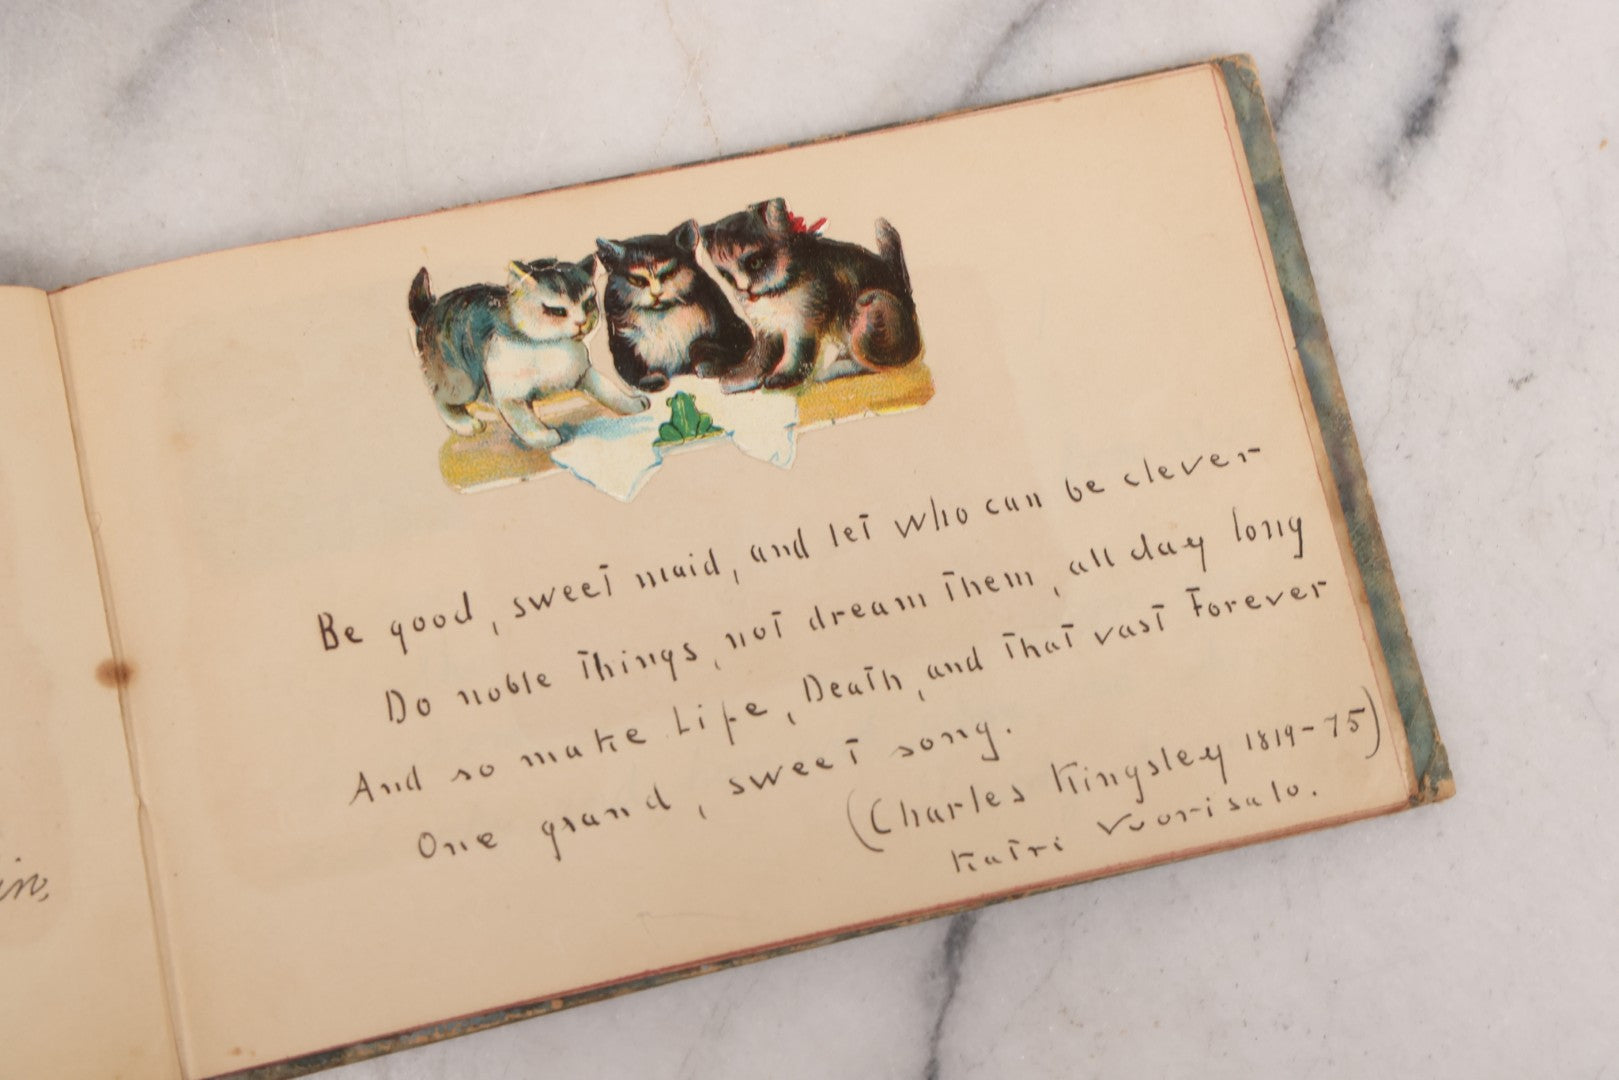 Be good, sweet maid, and let who can be clever
Do noble things, not dream them, all day long
And so make Life, Death, and that vast Forever
One grand, sweet song.
(Charles Kingsley 1819-75)
Katri Vuorisalo.